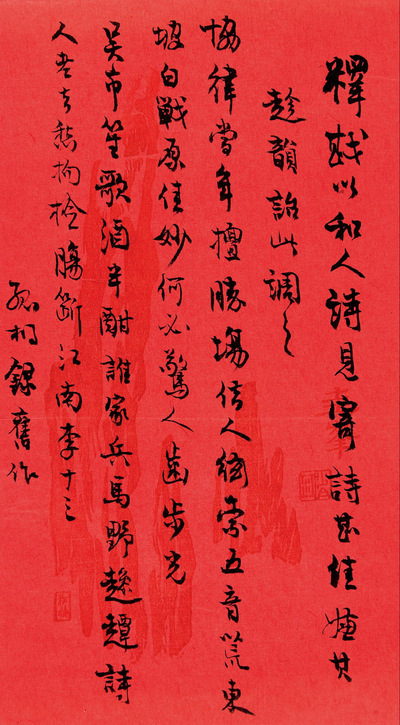 釋戡以和人詩見寄詩甚佳嫌其
趁韻詒此調之
協律當年擅勝場人索五音荒東
坡白戰原佳妙何必驚人齒步光
吳市笙歌酒半酣誰家兵馬野詩
人老去愁拘檢腸斷江南李十三
孤桐錄舊作